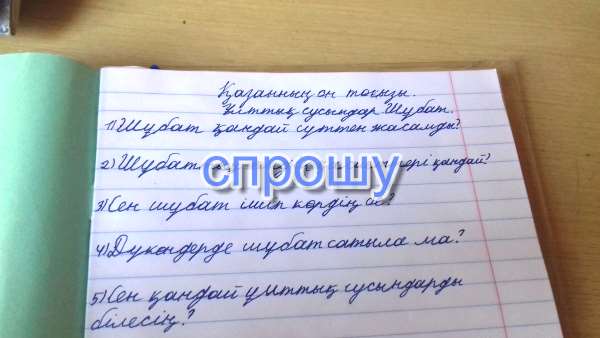 Қазанның он тоғызы.
Ұлттық сусындар Шұбат.
1) Шұбат қандай сүттен жасалды?
2) Шұбат спрошу қандай?
3) Сен шұбат ішіп көрдің бе?
4) Дүкендерде шұбат сатыла ма?
5) Сен қандай ұлттық сусындарды
білесің?